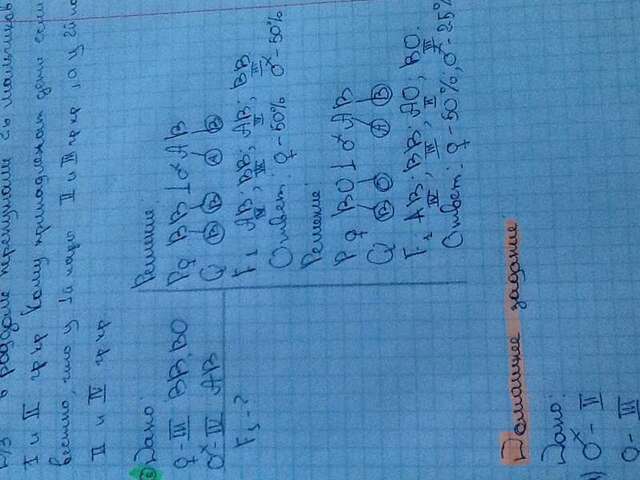 Д/З В роддоме перепутали 2ух мальчиков
I и II гр кр Кому принадлежат дети если
вестно, что у 1й пары II и III гр кр, а у 2й па
II и IV гр кр
Дано:
♀ - III BB, BO
♂ - IV AB
F₁ - ?
Решение:
P ♀ BB ⊥ ♂ AB
G B B A B
F₁ AB; BB; AB; BB
IV III IV III
Ответ: ♀ - 50% ♂ - 50%
Решение:
P ♀ BO ⊥ ♂ AB
G B O A B
F₁ AB; BB; AO; BO.
IV III II III
Ответ: ♀ - 50%; ♂ - 25%
Домашнее задание:
Дано:
♂ - II
♀ - III